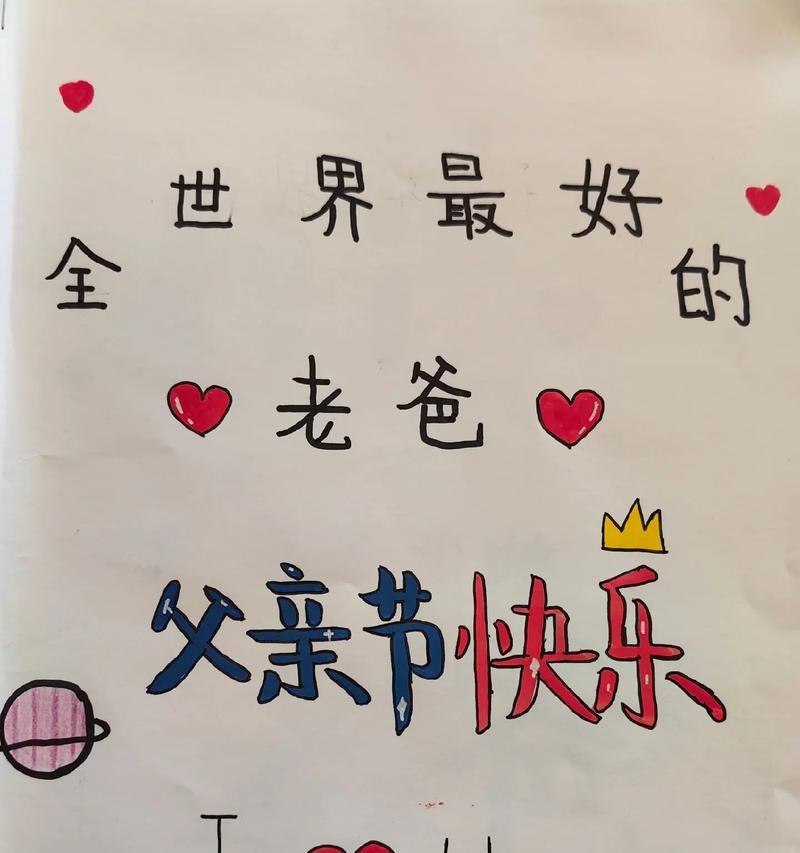 全世界最好的
老爸
父亲节快乐